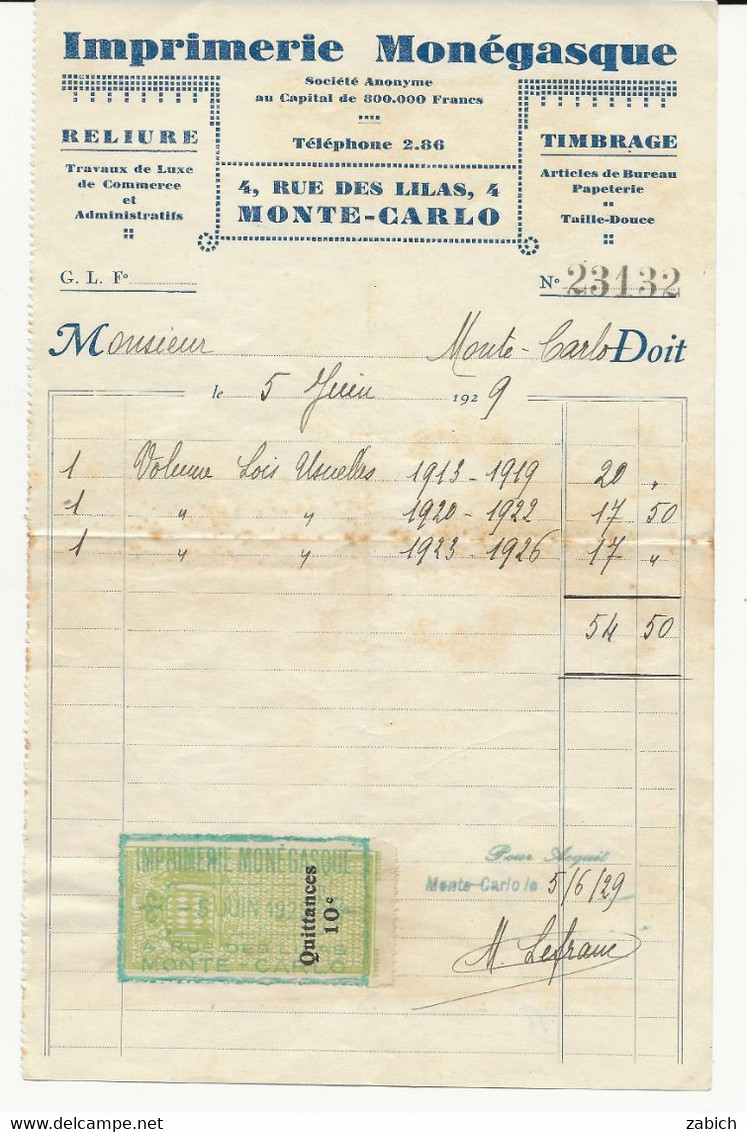 Imprimerie Monégasque
Société Anonyme
au Capital de 800.000 Francs
Téléphone 2.86
4, RUE DES LILAS, 4
MONTE-CARLO
RELIURE
Travaux de Luxe
de Commerce
et
Administratifs
TIMBRAGE
Articles de Bureau
Papeterie
Taille-Douce
G. L. F°
N° 23132
Monsieur Monte-Carlo Doit
le 5 Juin 1929
1 Volume Lois Usuelles 1913 - 1919 20 "
1 " " 1920 - 1922 17 50
1 " " 1923 - 1926 17 "
54 50
IMPRIMERIE MONÉGASQUE
5 JUIN 192
4, RUE DES
MONTE-C
Quittances
10c
Pour Acquit
Monte-Carlo le 5/6/29
M. Lefranc
zabich